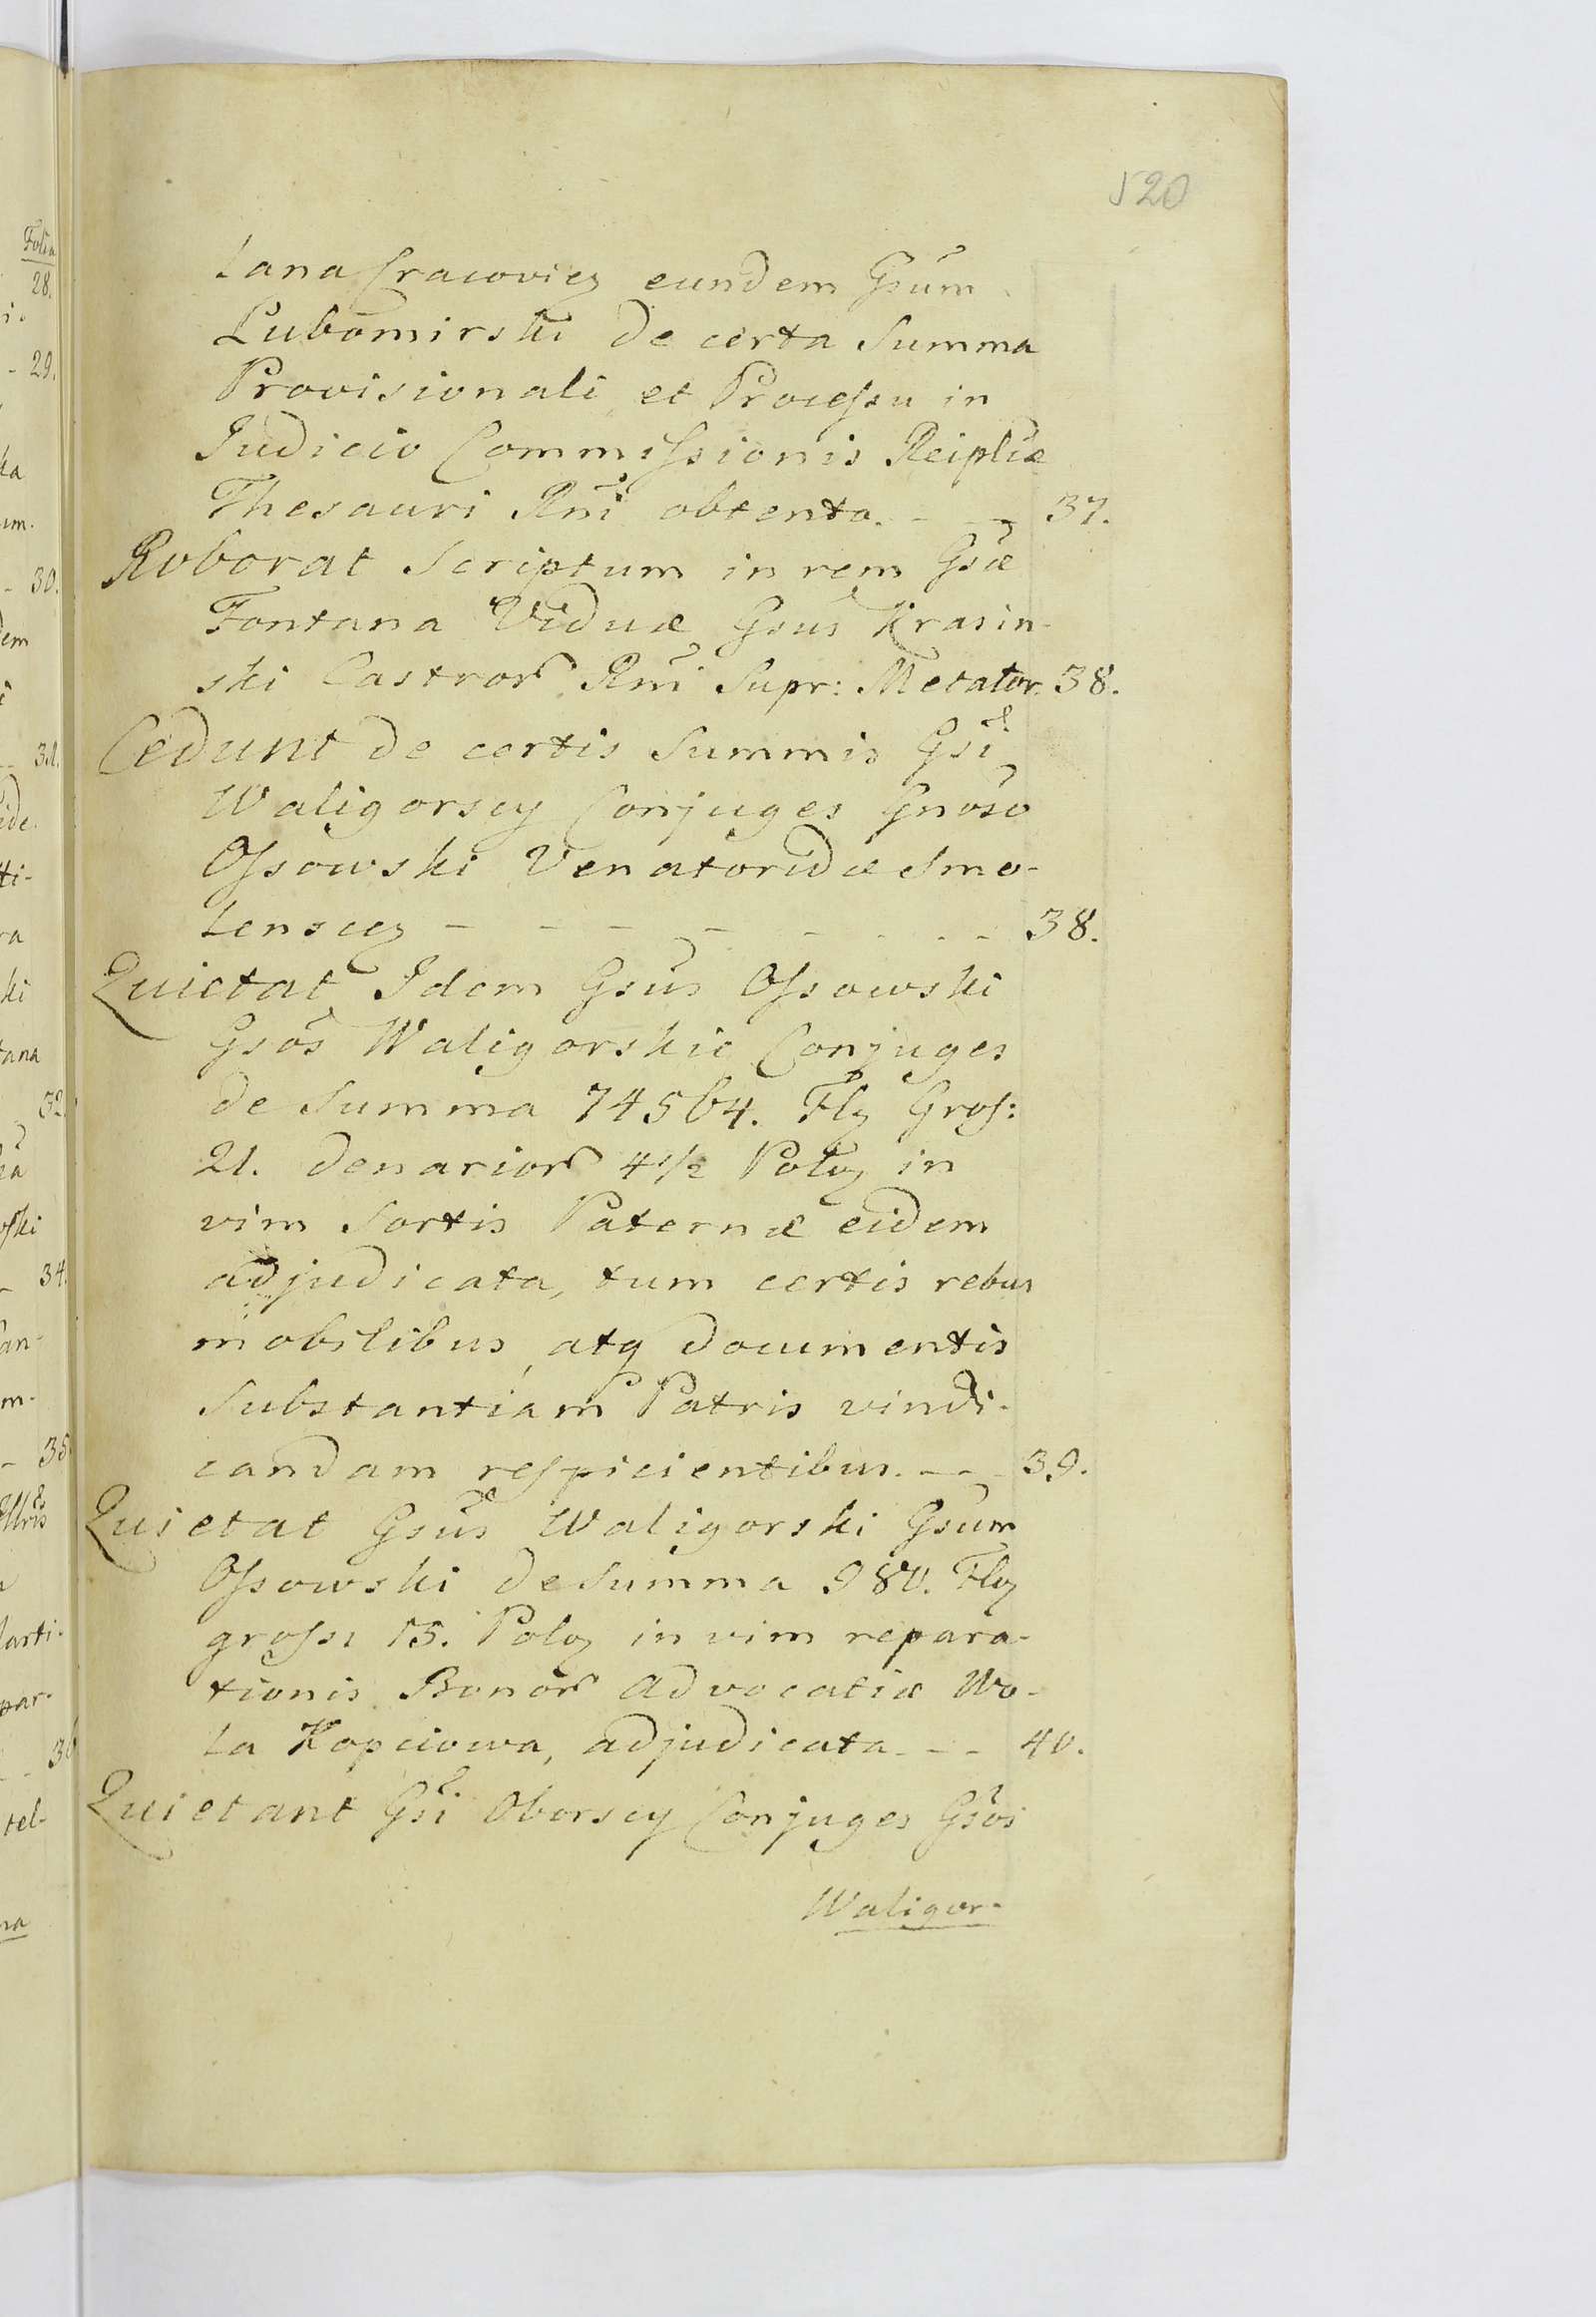 520
lana Cracovien eundem Gsum
Lubomirski de certa Summa
Provisionali et Processu in
Judicio Commissionis Reiplicæ
Thesauri Rni obtento. - - - 37.
Roborat Scriptum in rem Gsæ
Fontana Viduæ Gsus Krasin-
ski Castror Rni Supr: Metator. 38.
Cedunt de certis Summis Gsi
Waligorscy Conjuges Gnoso
Ossowski Venatoridæ Smo-
lenscen - - - - - - - - 38.
Quietat Idem Gsus Ossowski
Gsos Waligorskie Conjuges
de Summa 74564. Fln Gros:
21. denarior 4 1/2 Poln in
vim Sortis Paternæ eidem
adjudicata, tum certis rebus
mobilibus, atq documentis
Substantiam Patris vindi-
candam respicientibus. - - - 39.
Quietat Gsus Waligorski Gsum
Ossowski de Summa 980. Fln
gross 15. Poln in vim repara-
tionis Bonor Advocatiæ Wo-
la Kopciowa, adjudicata - - - 40.
Quietant Gsi Oborscy Conjuges Gsos
Waligor-